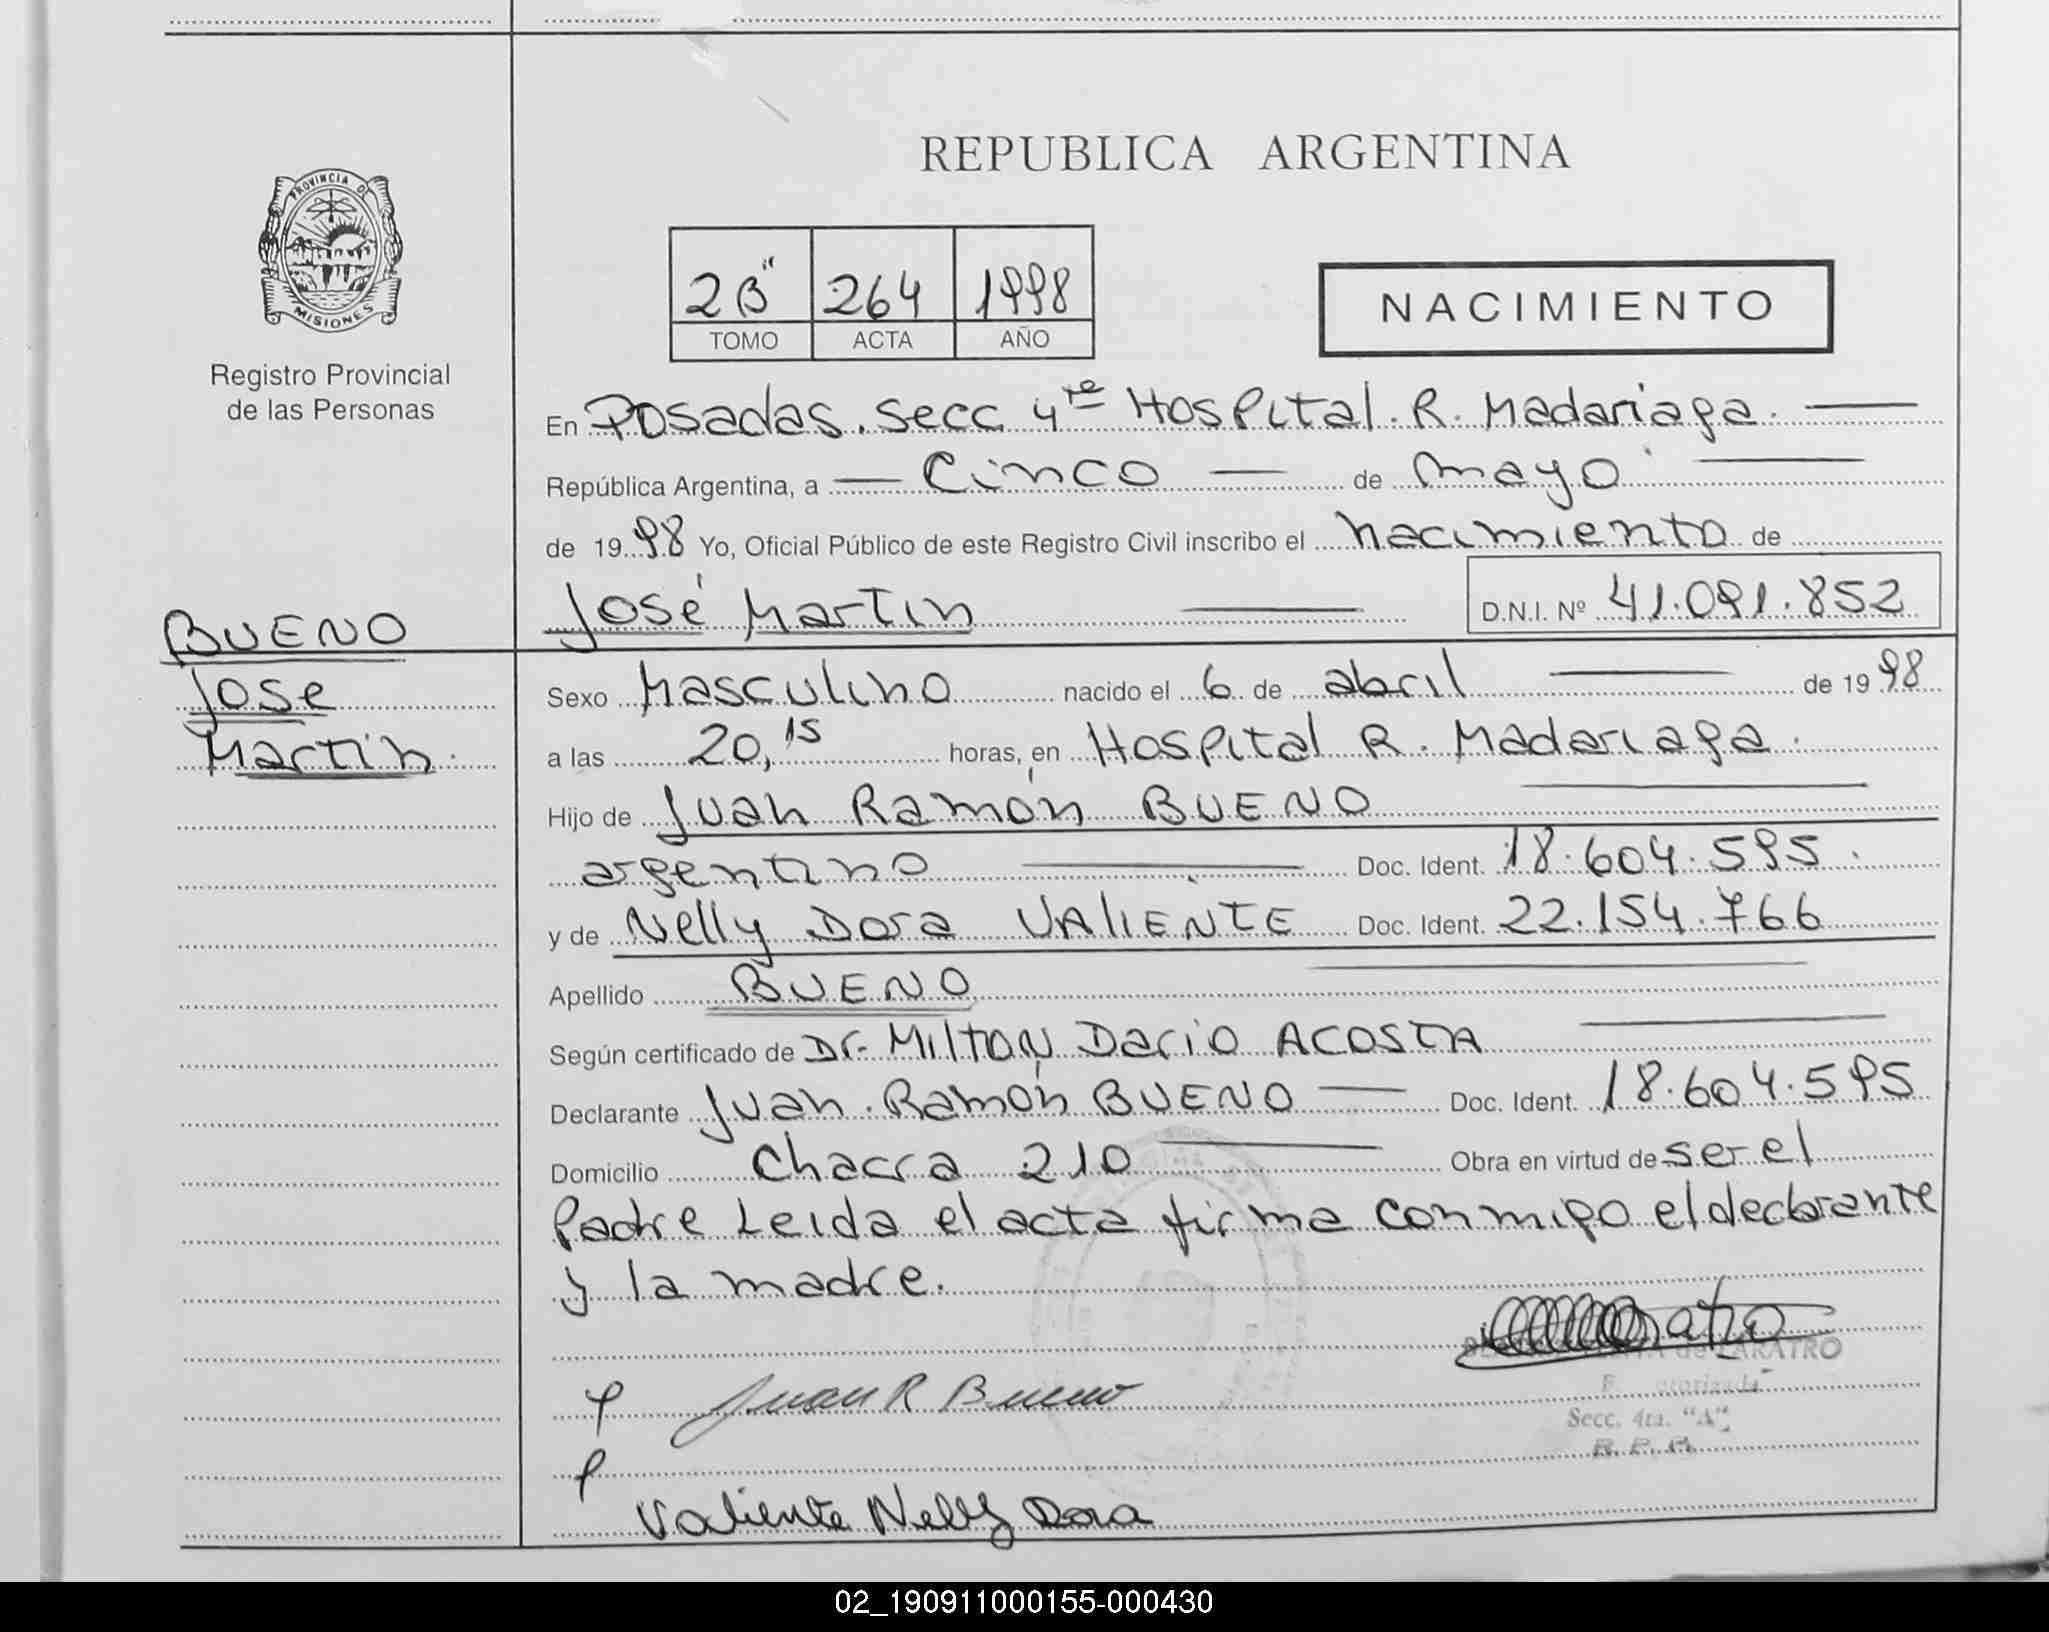 REPUBLICA ARGENTINA
PROVINCIA DE
MISIONES
Registro Provincial
de las Personas
2B" 264 1998
TOMO ACTA AÑO
NACIMIENTO
En Posadas. Secc 4ta Hospital. R. Madariaga.
República Argentina, a Cinco de mayo
de 1998 Yo, Oficial Público de este Registro Civil inscribo el nacimiento de
José Martin D.N.I. Nº 41.091.852
BUENO
Jose
Martin.
Sexo Masculino nacido el 6 de abril de 1998
a las 20,15 horas, en Hospital R. Madariaga.
Hijo de Juan Ramón BUENO
argentino Doc. Ident. 18.604.595.
y de Nelly Dora VALIENTE Doc. Ident. 22.154.766
Apellido BUENO
Según certificado de Dr. MILTON Dario ACOSTA
Declarante Juan. Ramón BUENO Doc. Ident. 18.604.595
Domicilio Chacra 210 Obra en virtud de ser el
Padre Leida el acta firma conmigo el declarante
y la madre.
de TARATRO
Secc. 4ta. "A"
R. P. P.
Juan R Bueno
Valiente Nelly Dora
02_190911000155-000430